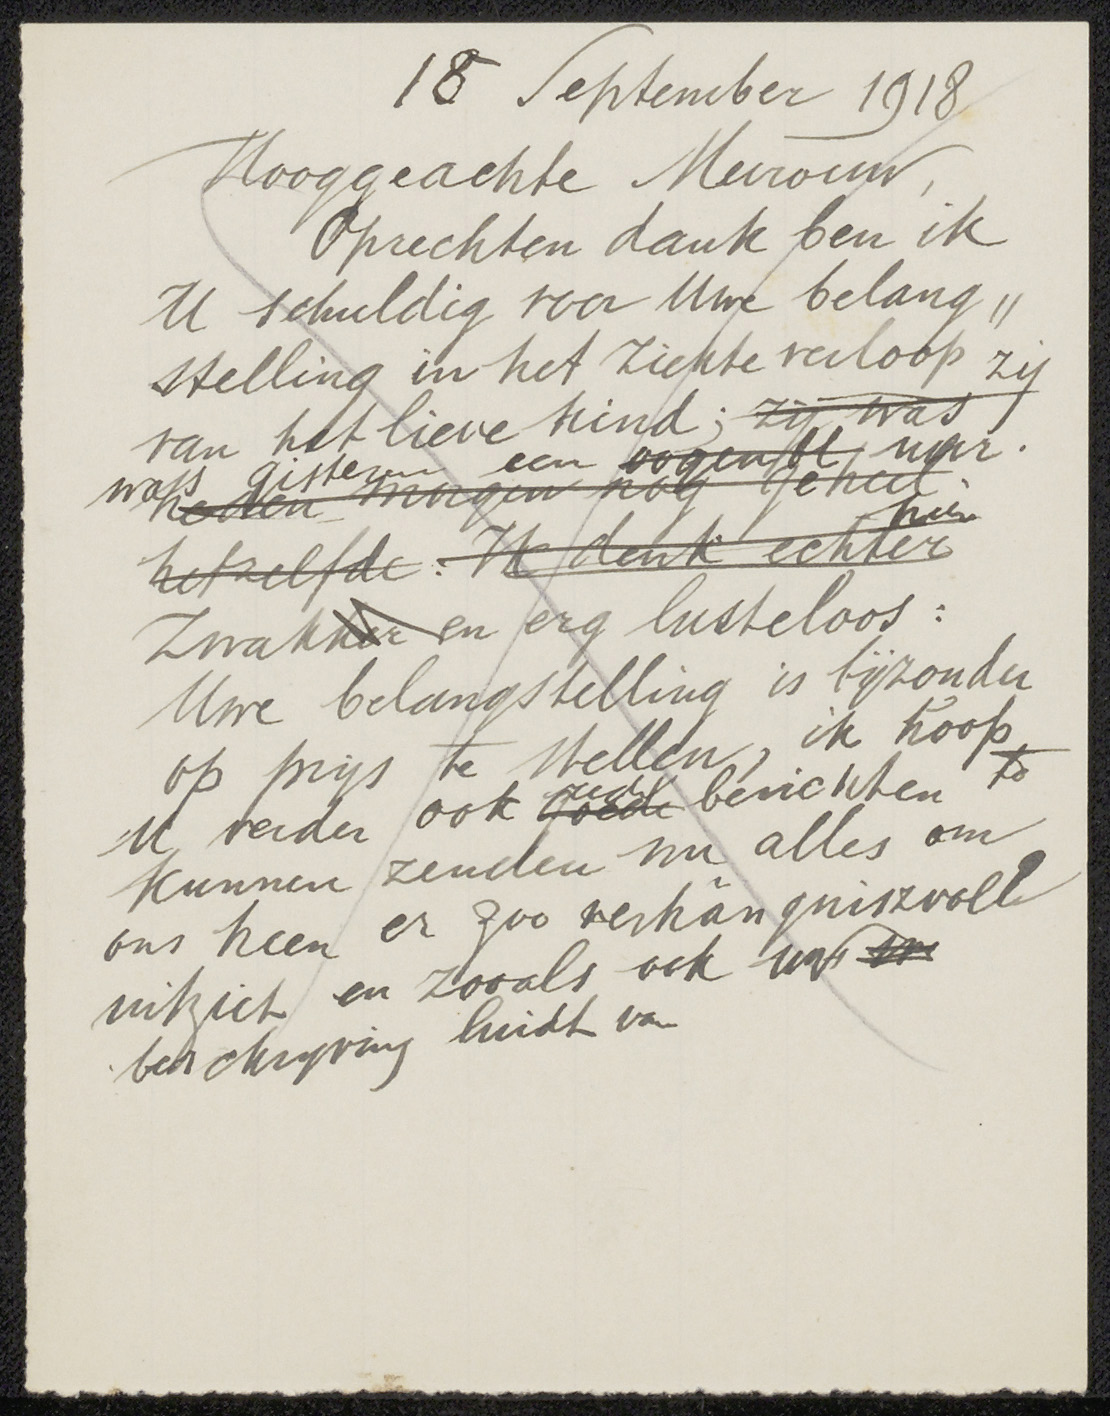 18 September 1918
Hooggeachte Mevrouw,
Oprechten dank ben ik
U schuldig voor Uwe belang„
stelling in het ziekte verloop zij
van het lieve kind; zij was
was gisteren een oogenbl
heden morgen nog geheel
hetzelfde. Ik denk echter
Zwakker en erg lusteloos:
Uwe belangstelling is bijzonder
op prijs te stellen, ik hoop
U verder ook goede berichten te
kunnen zenden nu alles om
ons heen er zoo verhängniszvoll
uitziet en zooals ook uw
beschrijving luidt van